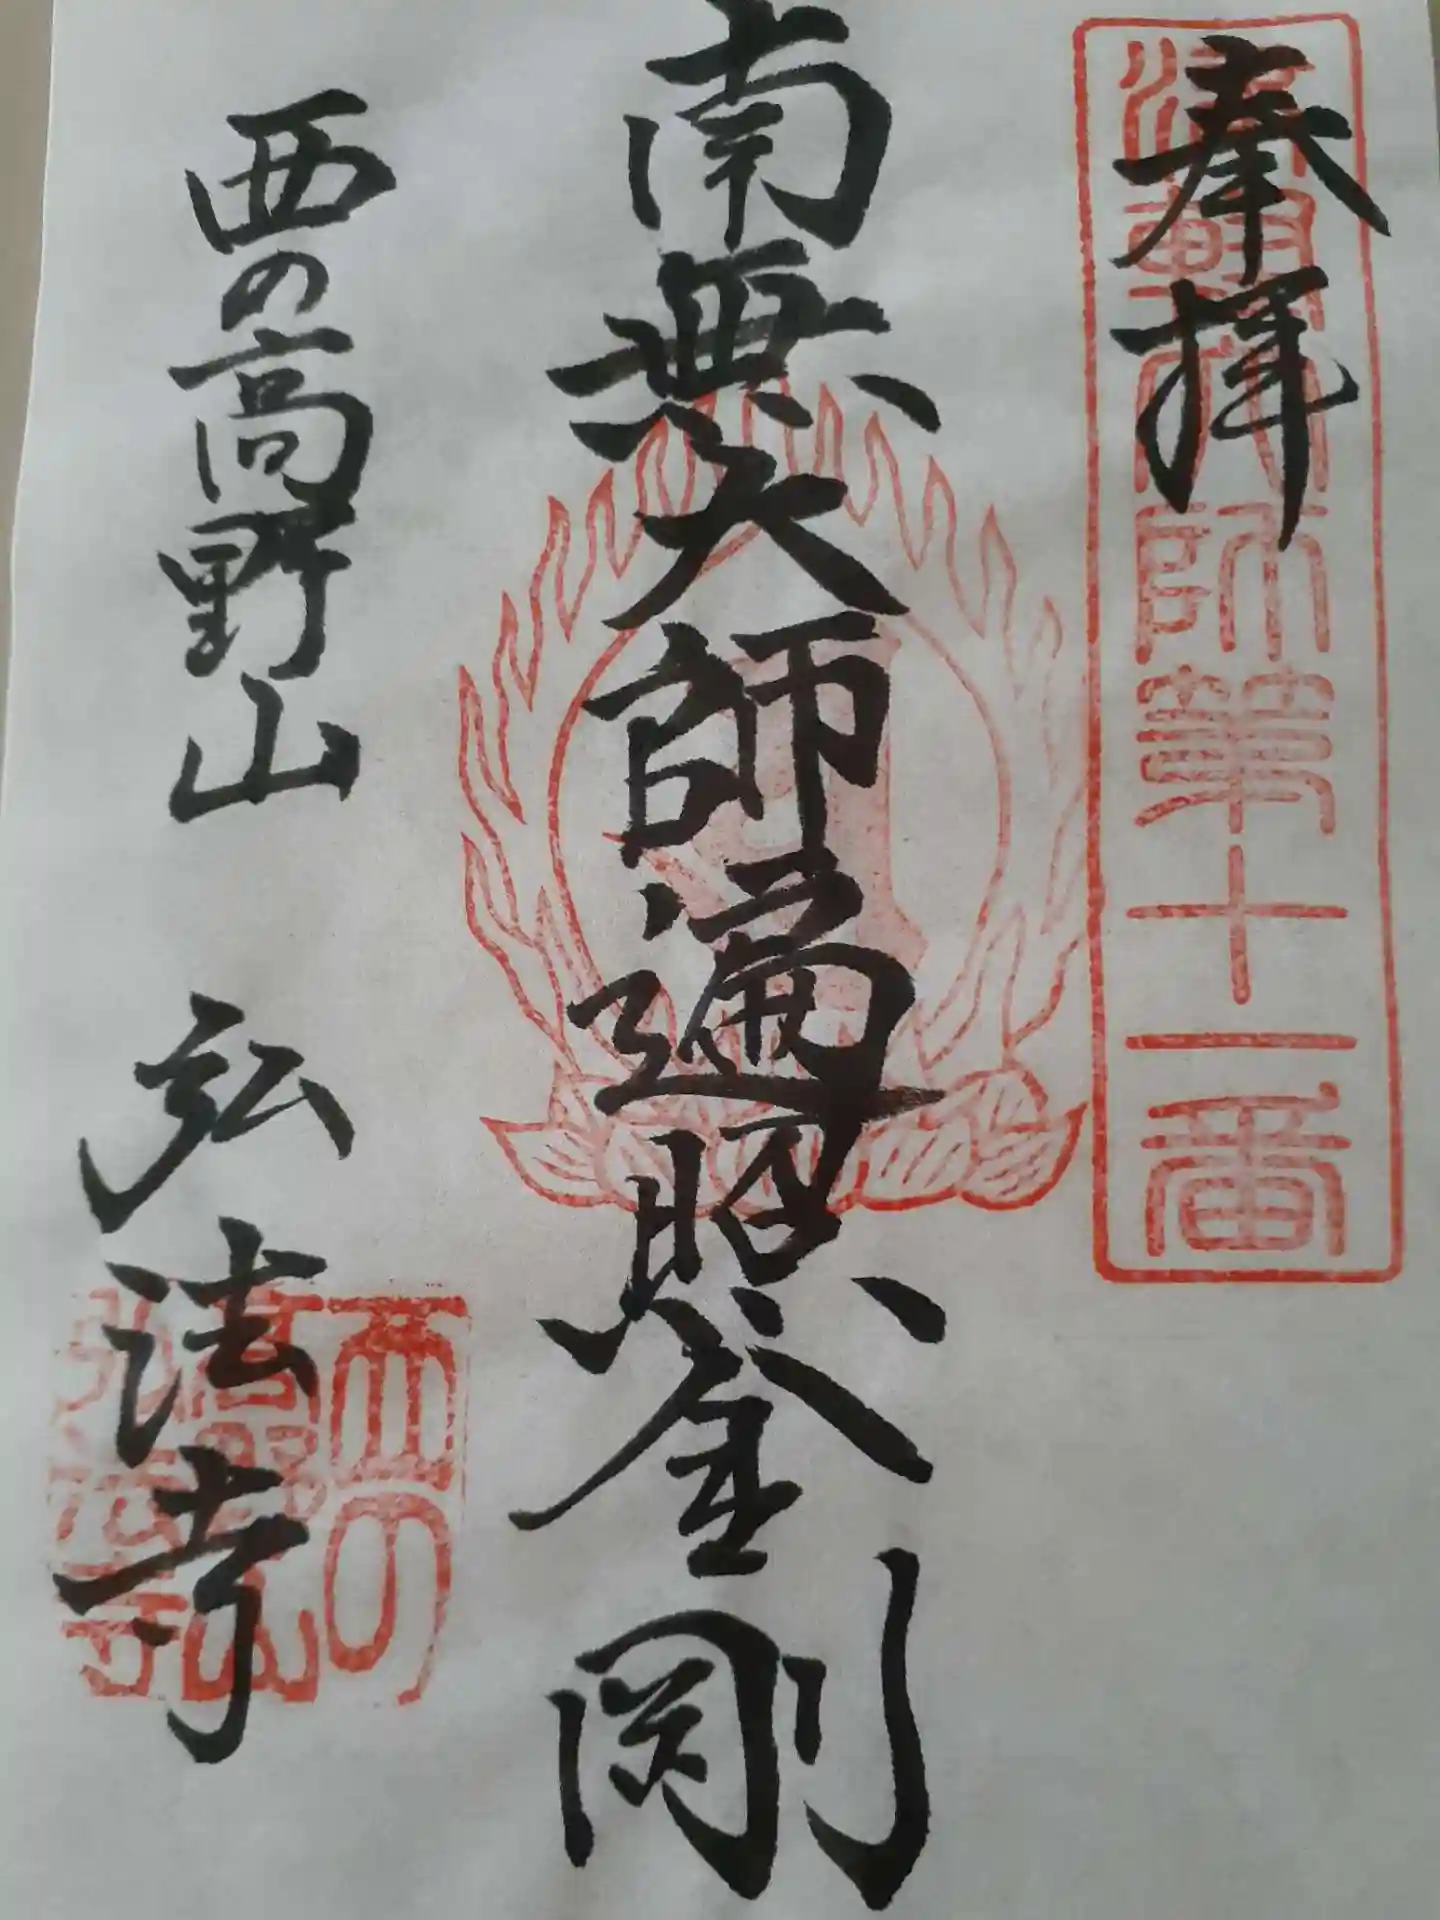 奉拝
薬師第十一番
南無大師遍照金剛
西の高野山 弘法寺
西の
高野山
弘法寺